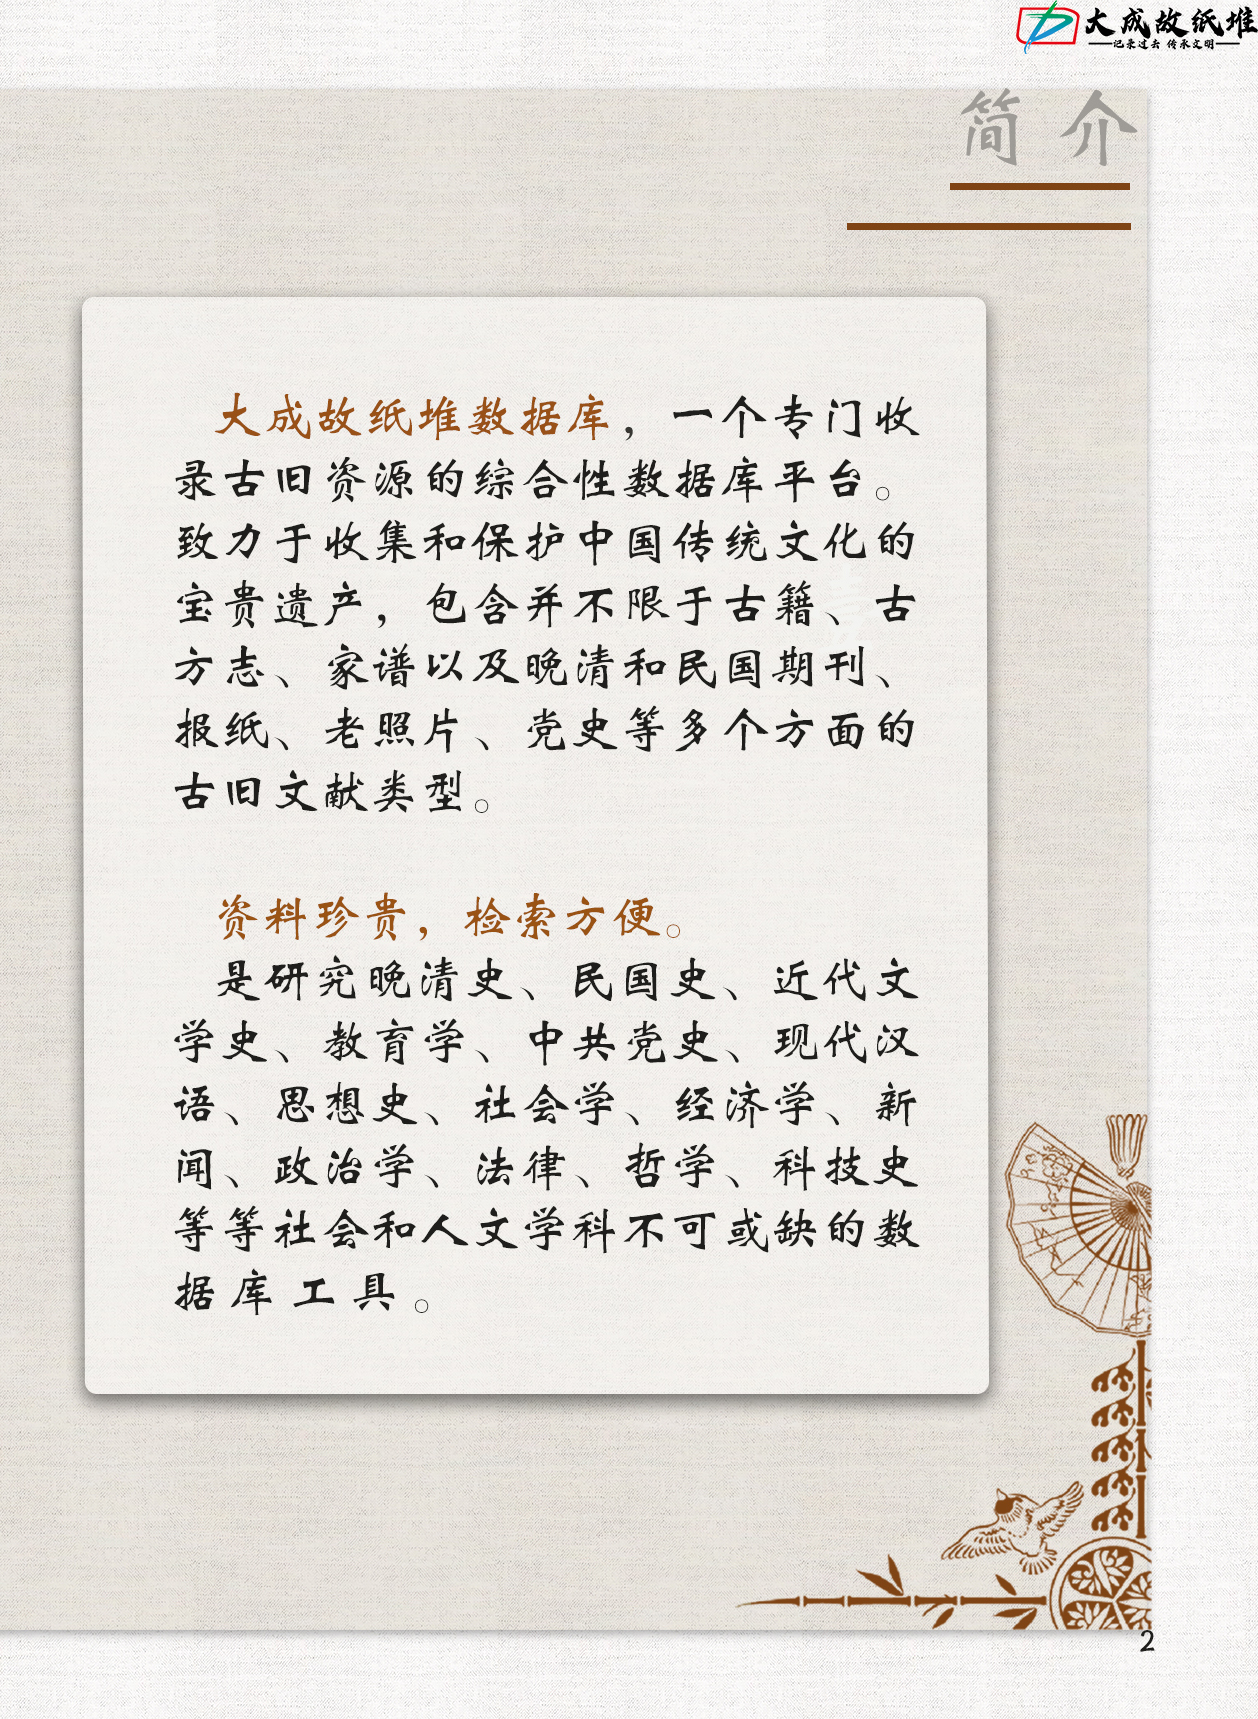 大成故纸堆
记录过去 传承文明
简 介
大成故纸堆数据库，一个专门收
录古旧资源的综合性数据库平台。
致力于收集和保护中国传统文化的
宝贵遗产，包含并不限于古籍、古
方志、家谱以及晚清和民国期刊、
报纸、老照片、党史等多个方面的
古旧文献类型。
资料珍贵，检索方便。
是研究晚清史、民国史、近代文
学史、教育学、中共党史、现代汉
语、思想史、社会学、经济学、新
闻、政治学、法律、哲学、科技史
等等社会和人文学科不可或缺的数
据库工具。
2